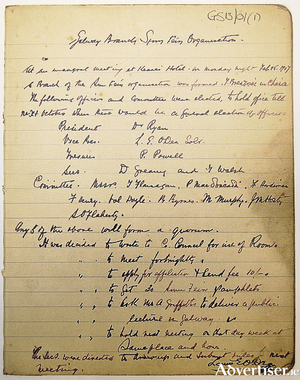 GS13/01(1)
Galway Branch, Sinn Fein Organisation.
At an inaugural meeting at Hotel on Monday night Feb 25 1907
a Branch of the Sinn Fein organisation was formed. in Chair
The following officers and Committee were elected, to hold office till
next October when there would be a general election of officers.
President Dr Ryan
Vice Pres. L. E. O'Dea Solr.
Treasurer P. Powell
Secs. D. and T Walsh
Committee. Messrs T. Flanagan, P. F. Hardiman
F. Hurley. B. Byrnes. M. Murphy.
S O'Flaherty.
Any 5 of the above will form a quorum.
It was decided to write to C. Council for use of Room
" " to meet fortnightly
" " to apply for affiliation & send fee 10/-
" " to get Sinn Fein pamphlets
" " to ask Mr A. Griffith to deliver a public
lecture in Galway
" " to hold next meeting on that day week at
same place and hour
The Secs. were directed to draw up and submit rules to next
meeting.
Advertiser.ie